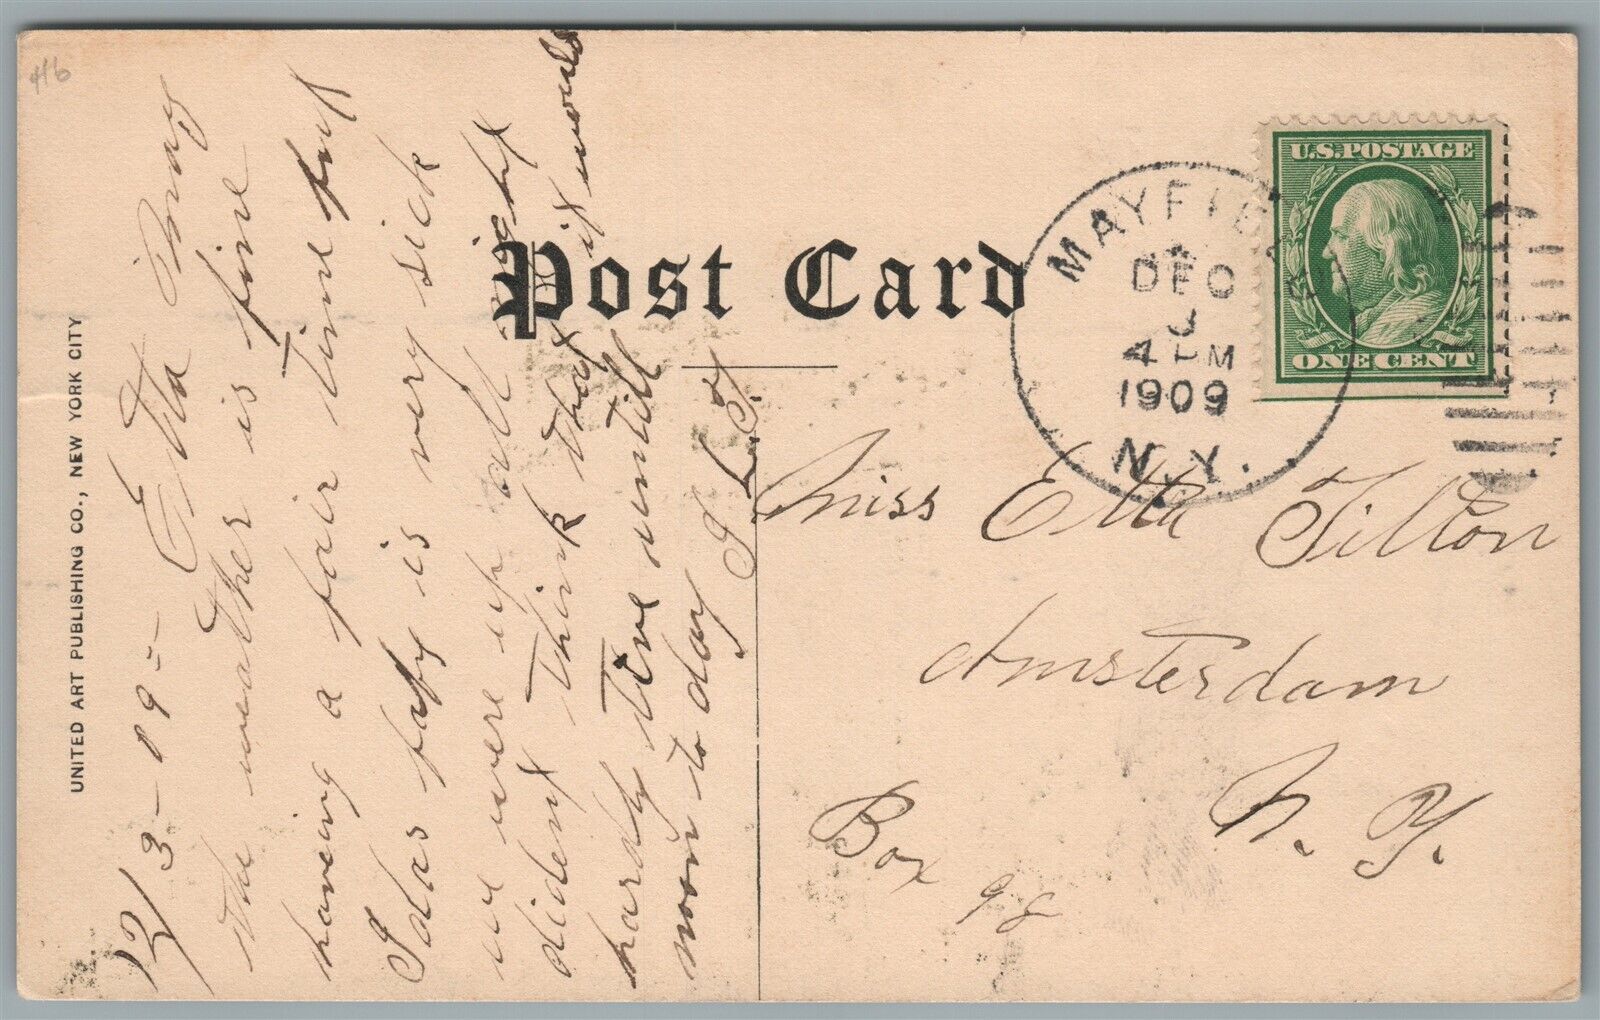 416
UNITED ART PUBLISHING CO., NEW YORK CITY
Post Card
MAYFIELD
DEC
4 PM
1909
N.Y.
U.S. POSTAGE
ONE CENT
12/3-09- Etta May
The weather is fine
having a fair time but
Idas baby is very sick
we were up all night
dident think that it would
hardly live untill
noon to day
Miss Etta Tilton
Amsterdam
N. Y.
Box 98